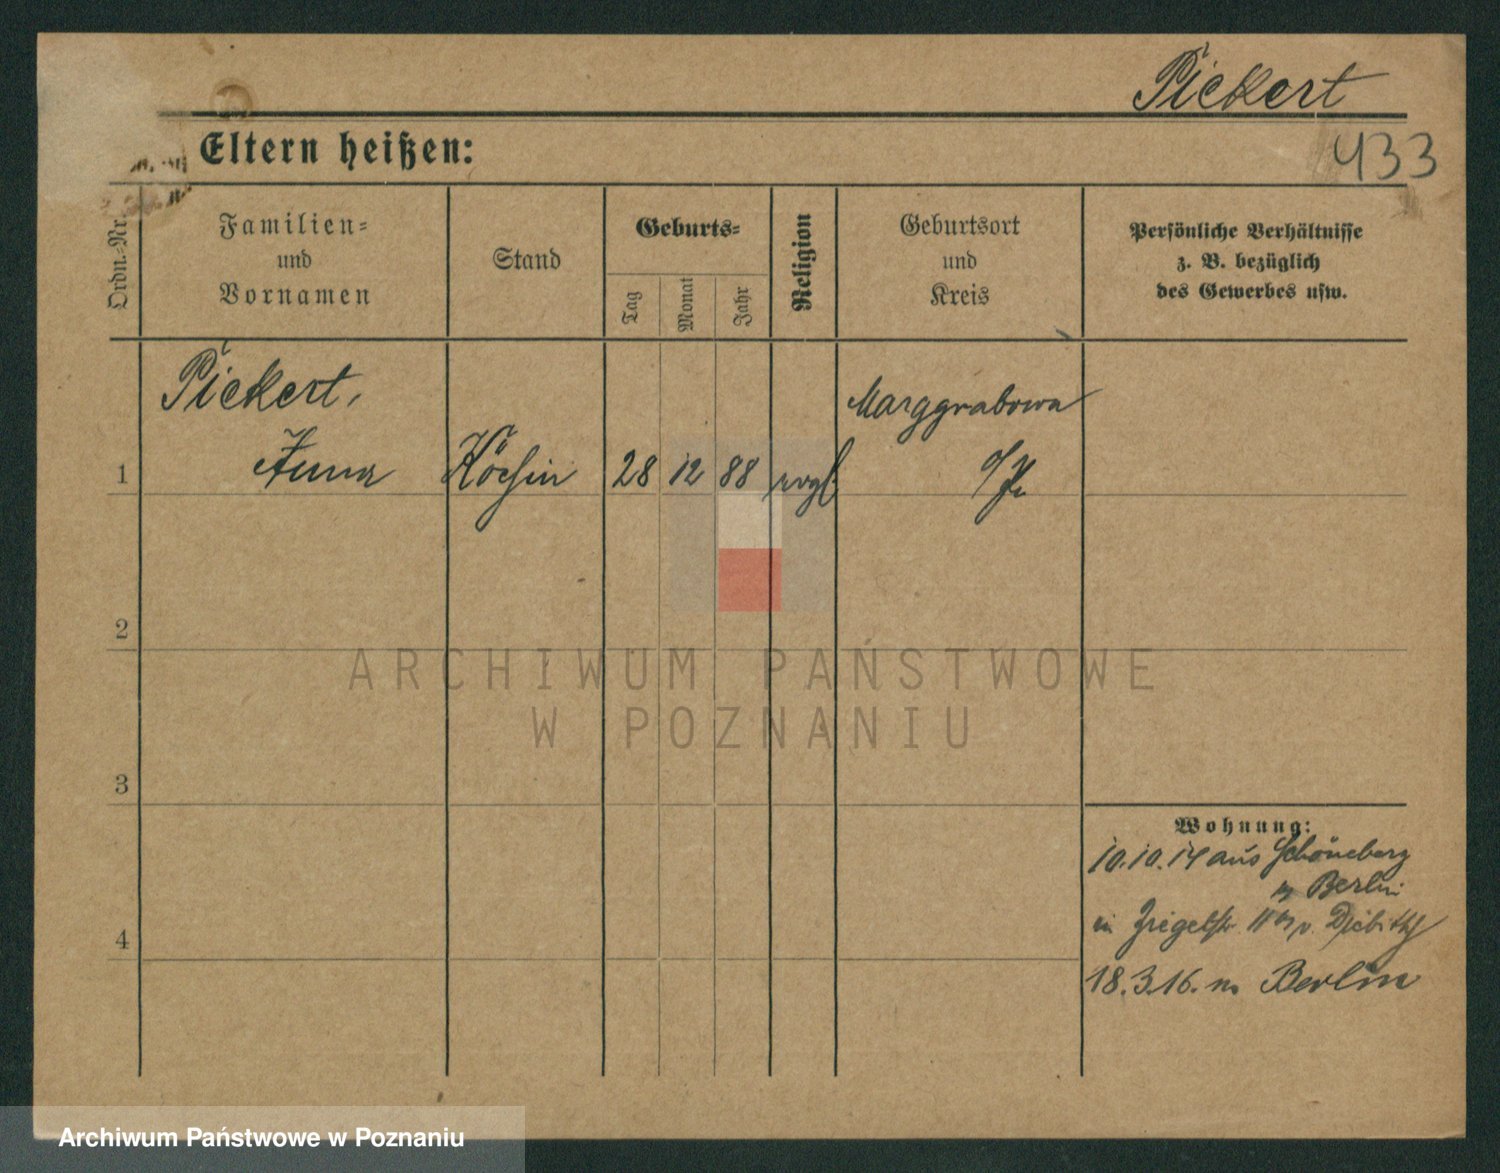 Pickert
433
Eltern heißen:
Ordn.-Nr.
Familien-
und
Vornamen
Stand
Geburts-
Tag
Monat
Jahr
Religion
Geburtsort
und
Kreis
Persönliche Verhältnisse
z. B. bezüglich
des Gewerbes usw.
Pickert,
Marggrabowa
1 Anna Köchin 28 12 88 evgl
2
ARCHIWUM PAŃSTWOWE
W POZNANIU
3
Wohnung:
10.10.14 aus Schöneberg
Berlin
in
4
18.3.16. n. Berlin
Archiwum Państwowe w Poznaniu